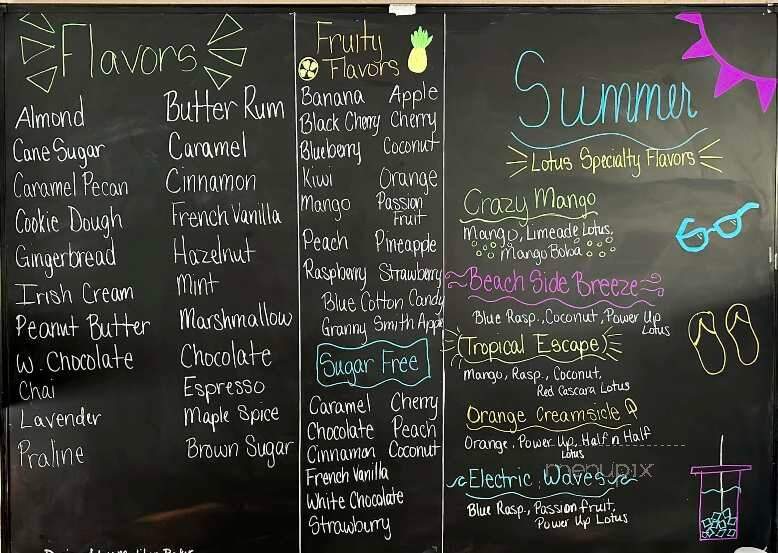 Flavors
Almond
Cane Sugar
Caramel Pecan
Cookie Dough
Gingerbread
Irish Cream
Peanut Butter
W. Chocolate
Chai
Lavender
Praline
Butter Rum
Caramel
Cinnamon
French Vanilla
Hazelnut
Mint
Marshmallow
Chocolate
Espresso
Maple Spice
Brown Sugar
Fruity
Flavors
Banana Apple
Black Cherry Cherry
Blueberry Coconut
Kiwi Orange
Mango Passion
Fruit
Peach Pineapple
Raspberry Strawberry
Blue Cotton Candy
Granny Smith Apple
Sugar Free
Caramel Cherry
Chocolate Peach
Cinnamon Coconut
French Vanilla
White Chocolate
Strawberry
Summer
Lotus Specialty Flavors
Crazy Mango
Mango, Limeade Lotus,
Mango Boba
Beach Side Breeze
Blue Rasp., Coconut, Power Up
Lotus
Tropical Escape
Mango, Rasp., Coconut,
Red Cascara Lotus
Orange Creamsicle
Orange, Power Up, Half n Half
Lotus
menupix
Electric Waves
Blue Rasp., Passion fruit,
Power Up Lotus